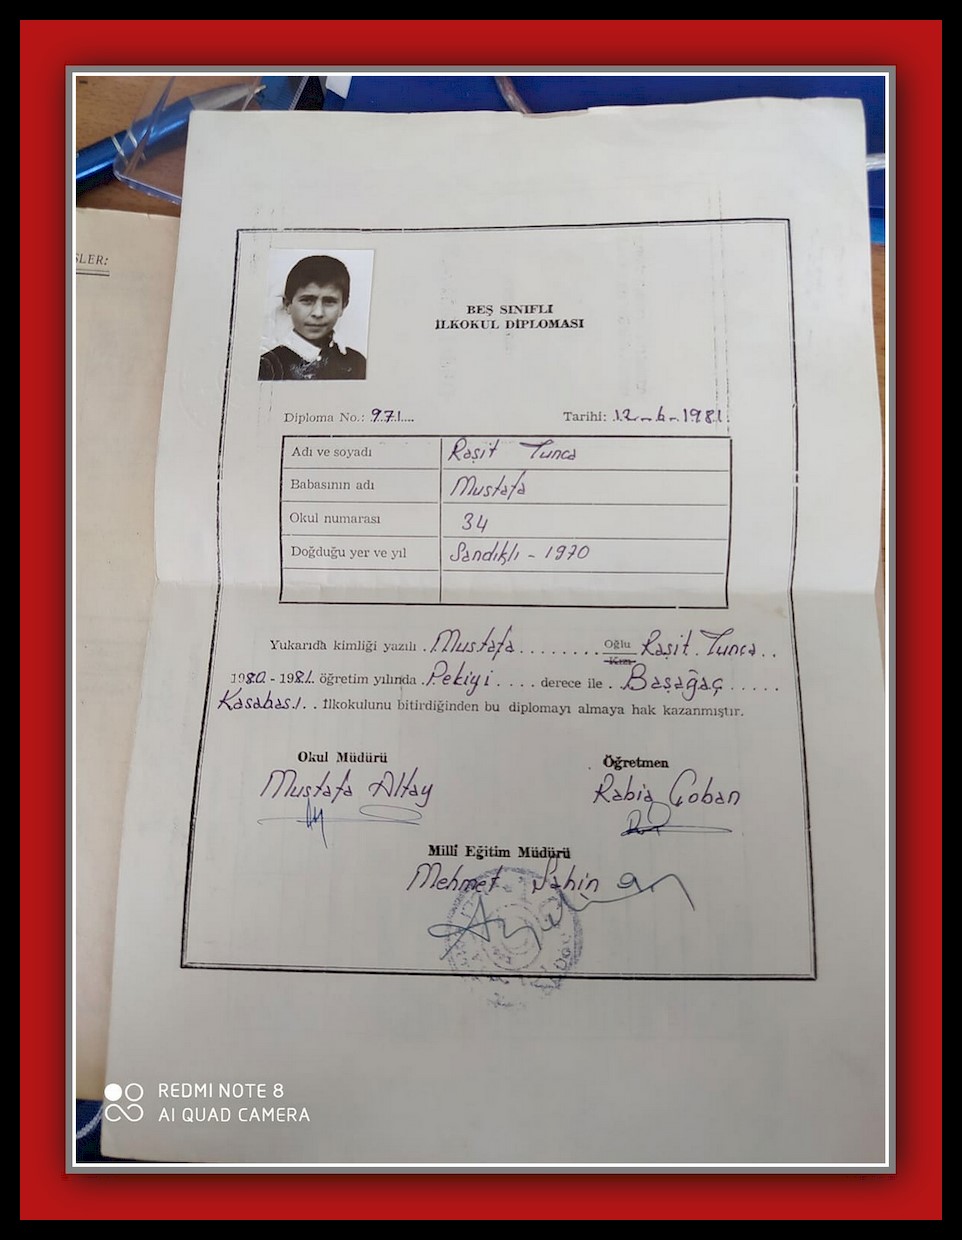 ŞLER:
BEŞ SINIFLI
İLKOKUL DİPLOMASI
Diploma No.: 971.... Tarihi: 12-6-1981.
Adı ve soyadı Raşit Tunca
Babasının adı Mustafa
Okul numarası 34
Doğduğu yer ve yıl Sandıklı - 1970
Yukarıda kimliği yazılı . Mustafa ........ Oğlu Kızı Raşit Tunca ..
1980 - 1981. öğretim yılında . Pekiyi .... derece ile . Başağaç .....
Kasabası .. İlkokulunu bitirdiğinden bu diplomayı almaya hak kazanmıştır.
Okul Müdürü Öğretmen
Mustafa Altay Rabia Çoban
Millî Eğitim Müdürü
Mehmet Şahin
REDMI NOTE 8
AI QUAD CAMERA